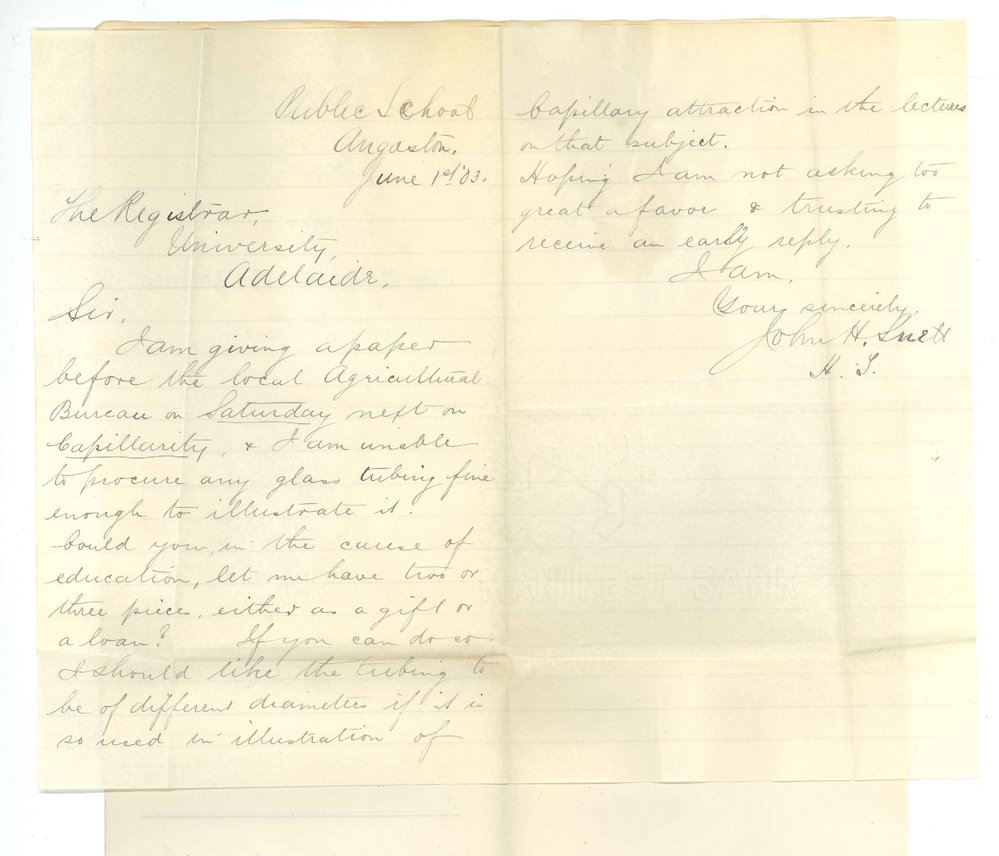 Public School
Angaston,
June 1st '03.
The Registrar,
University,
Adelaide,
Sir,
I am giving a paper
before the local Agricultural
Bureau on Saturday next on
Capillarity, & I am unable
to procure any glass tubing fine
enough to illustrate it.
Could you, in the cause of
education, let me have two or
three pieces, either as a gift or
a loan? If you can do so
I should like the tubing to
be of different diameters if it is
so used in illustration of
Capillary attraction in the lectures
on that subject.
Hoping I am not asking too
great a favor & trusting to
receive an early reply.
I am,
Yours sincerely,
John H. Snell
H. T.